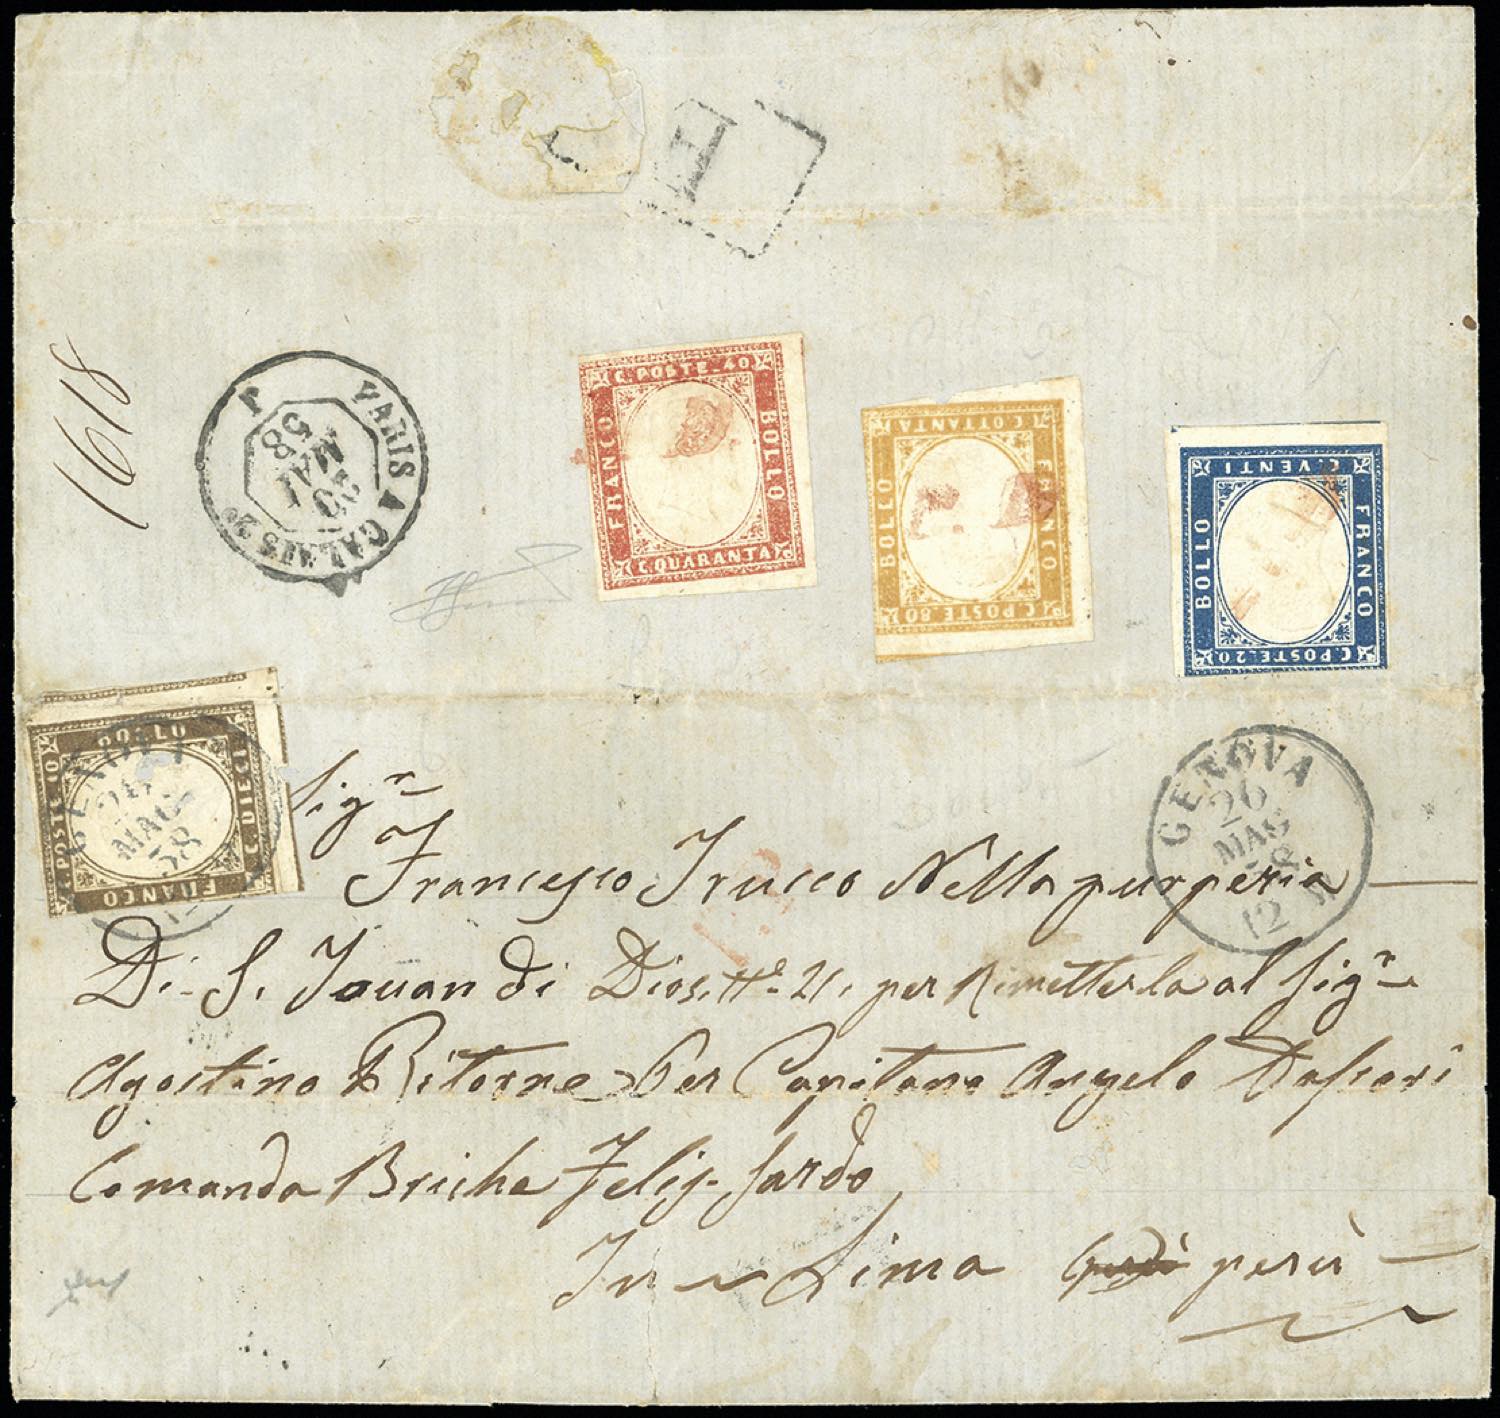 1618
PARIS A CALAIS 2º
29
MAI
58
C. POSTE. 40
FRANCO
BOLLO
C. QUARANTA
C. OTTANTA
BOLLO
FRANCO
C. POSTE 80
C. VENTI
BOLLO
FRANCO
C. POSTE. 20
BOLLO
C. POSTE 10
C. DIECI
FRANCO
GENOVA
26
MAG
58
GENOVA
26
MAG
58
12 M
Sig.r
Francesco Trucco Nella purperia
Di S. Jouan di Dios, Nº 21, per Rimetterla al Sig.r
Agostino Bitorne Per Capitano Angelo
Comanda Briche Felis. Sardo
In Lima perù